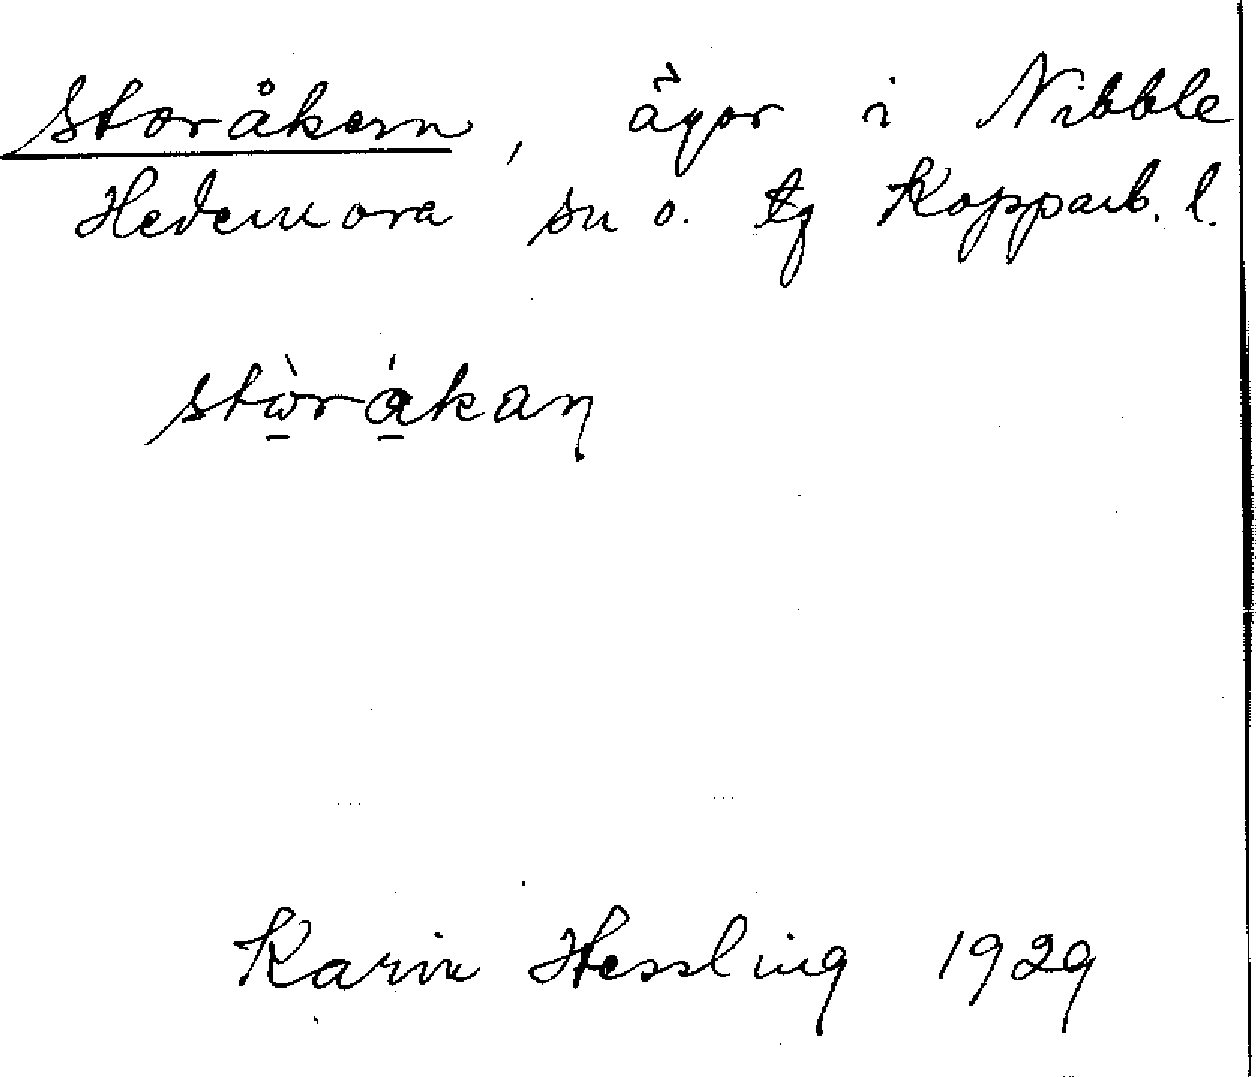 Storåkern, ägor i Nibble
Hedemora sn o. tg Kopparb. l.
stòråkaɳ
Karin Hessling 1929